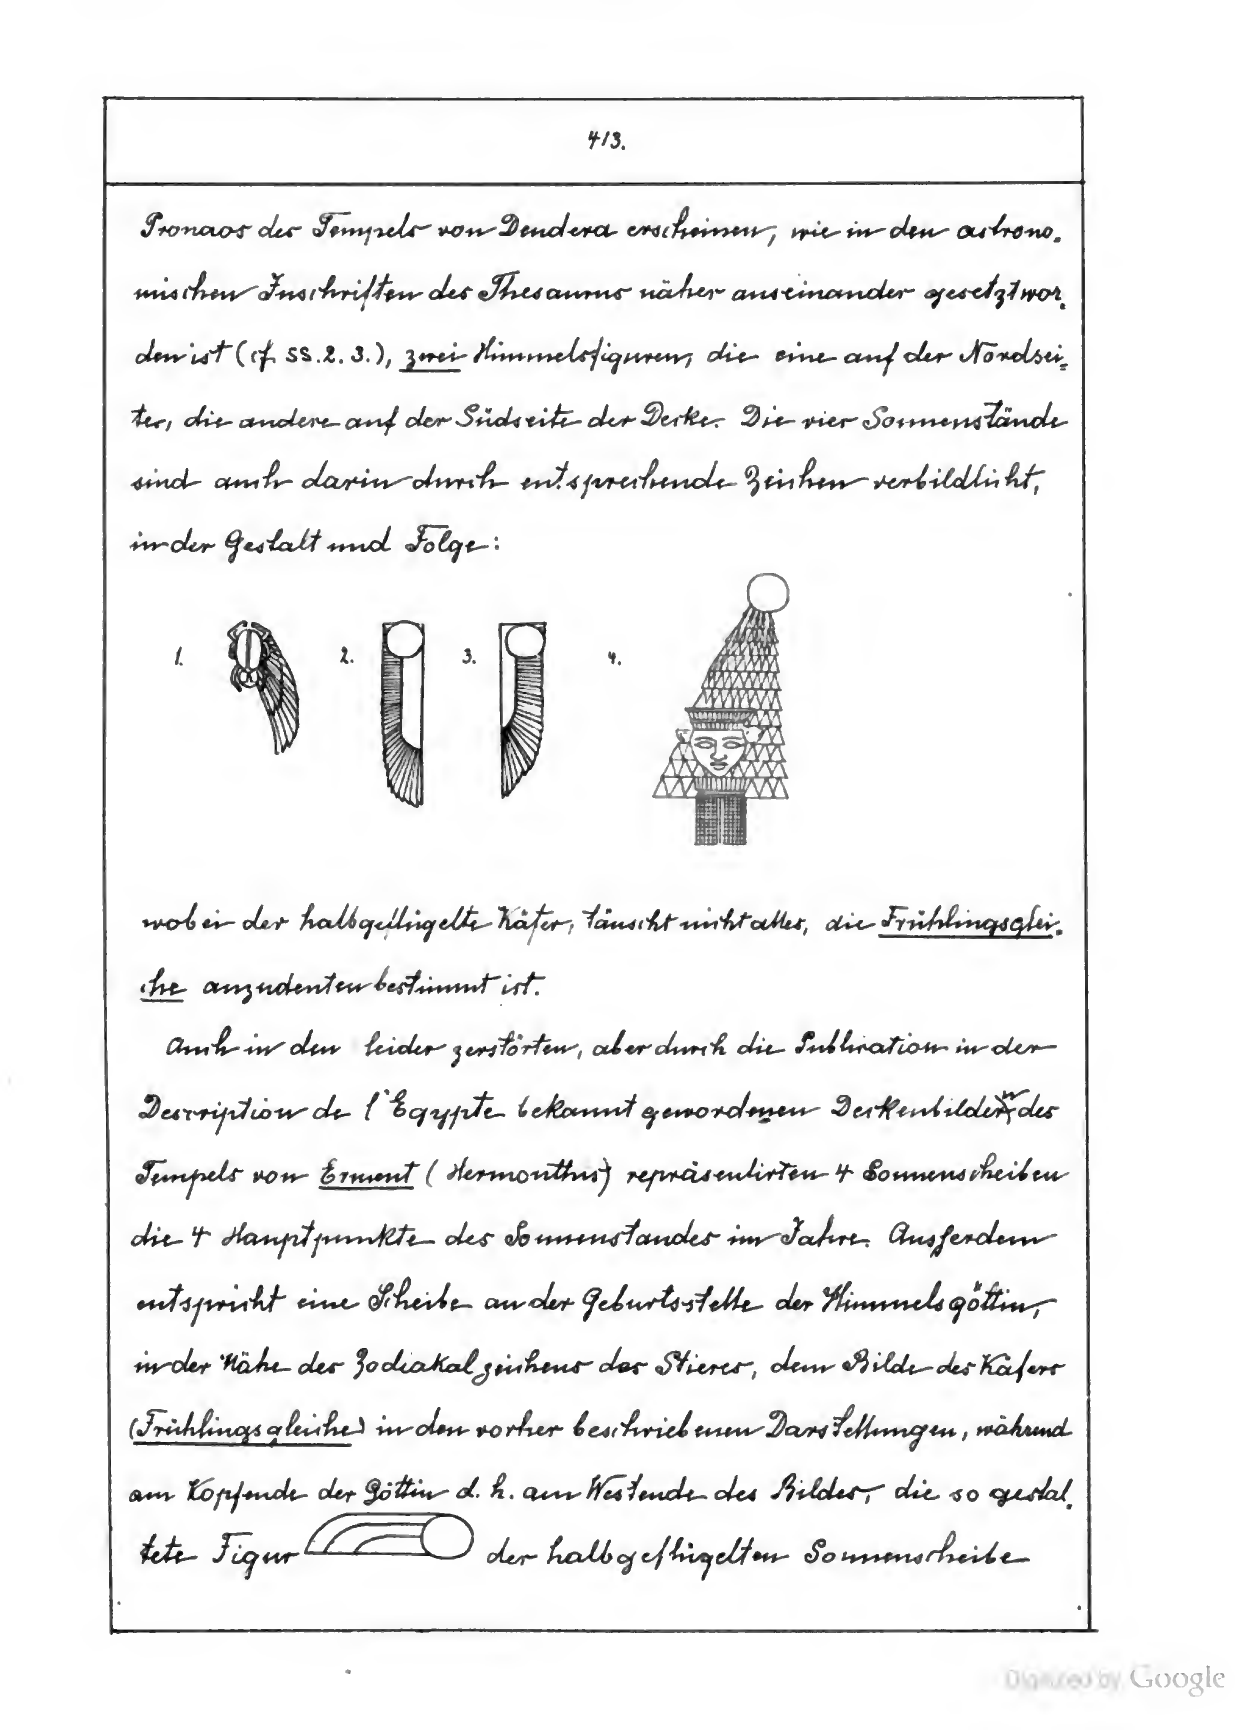 413.
Pronaos des Tempels von Dendera erscheinen, wie in den astrono-
mischen Inschriften des Thesaurus näher auseinander gesetzt wor-
den ist (cf. SS. 2. 3.), zwei Himmelsfiguren, die eine auf der Nordsei-
te, die andere auf der Südseite der Decke. Die vier Sonnenstände
sind auch darin durch entsprechende Zeichen verbildlicht,
in der Gestalt und Folge:
1. 2. 3. 4.
wobei der halbgeflügelte Käfer, täuscht nicht alles, die Frühlingsglei-
che anzudeuten bestimmt ist.
Auch in den leider zerstörten, aber durch die Publication in der
Description de l'Egypte bekannt gewordenen Deckenbildern des
Tempels von Erment (Hermonthis) repräsentirten 4 Sonnenscheiben
die 4 Hauptpunkte des Sonnenstandes im Jahre. Ausserdem
entspricht eine Scheibe an der Geburtsstelle der Himmelsgöttin,
in der Nähe des Zodiakalzeichens des Stieres, dem Bilde des Käfers
(Frühlingsgleiche) in den vorher beschriebenen Darstellungen, während
am Kopfende der Göttin d. h. am Westende des Bildes, die so gestal-
tete Figur der halbgeflügelten Sonnenscheibe
Digitized by Google